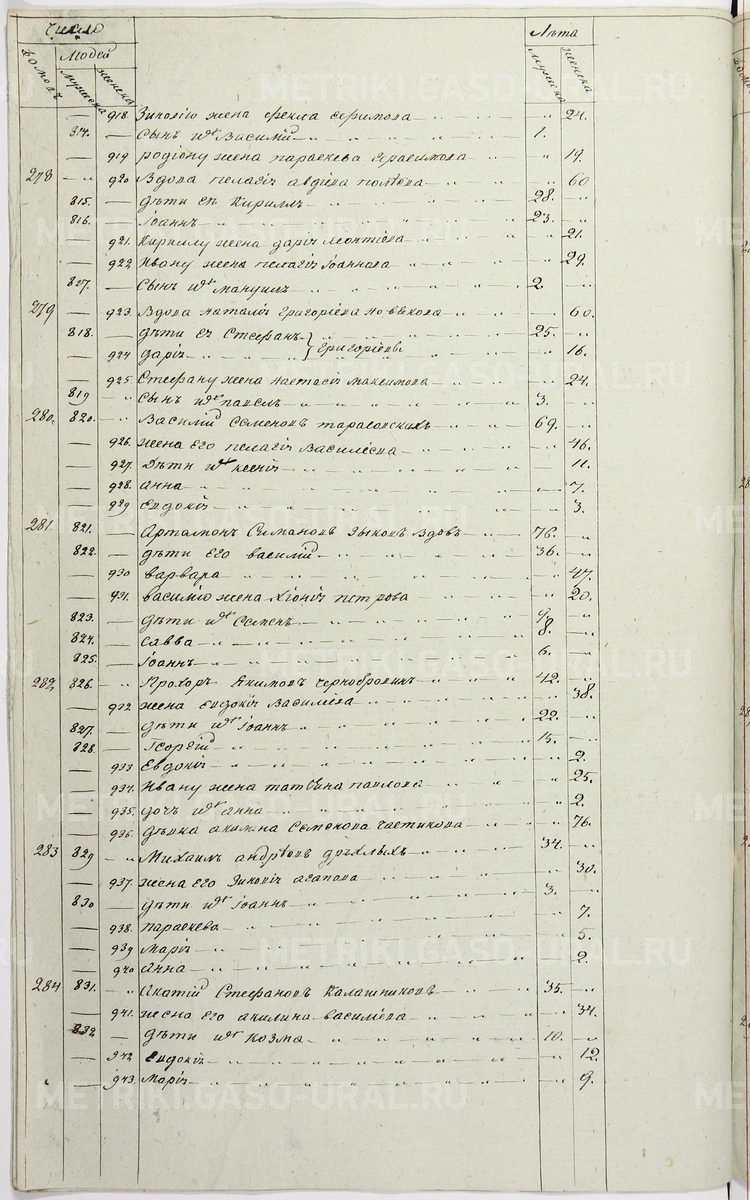 Число Лѣта
домовъ Людей мужеска женска мужеска женска
— 918 Зиновію жена Фекла Ефимова „ 24.
814. — Сынъ ихъ Василій 1. „
— 919 Родіону жена Параскева Герасимова „ 19.
278 — „ 920 Вдова Пелагія Авдіева „ 60
815. — Дѣти ея Кириллъ 28. „
816. — Іоаннъ 23. „
— 921. Кириллу жена Дарія Леонтіева „ 21.
— 922 Ивану жена Пелагія Іоаннова „ 29.
817. — Сынъ ихъ Мануилъ 2. „
279 — 923. Вдова Наталія Григоріева „ 60.
818. — Дѣти ея Стефанъ 25. „
— 924 Дарія } Григоріевы „ 16.
— 925 Стефану жена Настасія Максимова „ 24.
819 „ Сынъ ихъ Павелъ 3. „
280. 820. „ Василій Семеновъ Тарасовскихъ 69. „
— 926. жена его Пелагія Василіева „ 46.
— 927. Дѣти ихъ Ксенія „ 11.
— 928. Анна — 7.
— 929 Евдокія „ 3.
281. 821. — Артамонъ Симановъ Зыковъ Вдовъ 76. „
822. — Дѣти его Василій 36. —
— 930 Варвара „ 47.
— 931. Василію жена Хіонія Петрова „ 20.
823. — Дѣти ихъ Семенъ 9. „
824. — Савва 8. „
825. — Іоаннъ 6. „
282 826. „ Прохоръ Якимовъ Чернобровихъ 42. „
— 932 жена Евдокія Василіева „ 38.
827. — Дѣти ихъ Іоаннъ 22. „
828. — Георгій 15. „
— 933 Евдокія „ 2.
— 934. Ивану жена Татіана Павлова „ 25.
— 935. Дочь ихъ Анна „ 2.
— 936. Дѣвка Акилина Семенова Частикова „ 76.
283 829 „ Михаилъ Андрѣевъ Дряхлыхъ 34. „
— 937. жена его Зиновія Агапова „ 30.
830 — Дѣти ихъ Іоаннъ 3. „
— 938. Параскева „ 7.
— 939 Марія „ 5.
— 940 Анна „ 2.
284 831. „ Стефановъ Калашниковъ 35. —
— 941. жена его Акилина Василіева „ 34.
832 — Дѣти ихъ Козма 10. „
— 942 Евдокія „ 12.
— 943. Марія „ 9.
METRIKI.GASO-URAL.RU